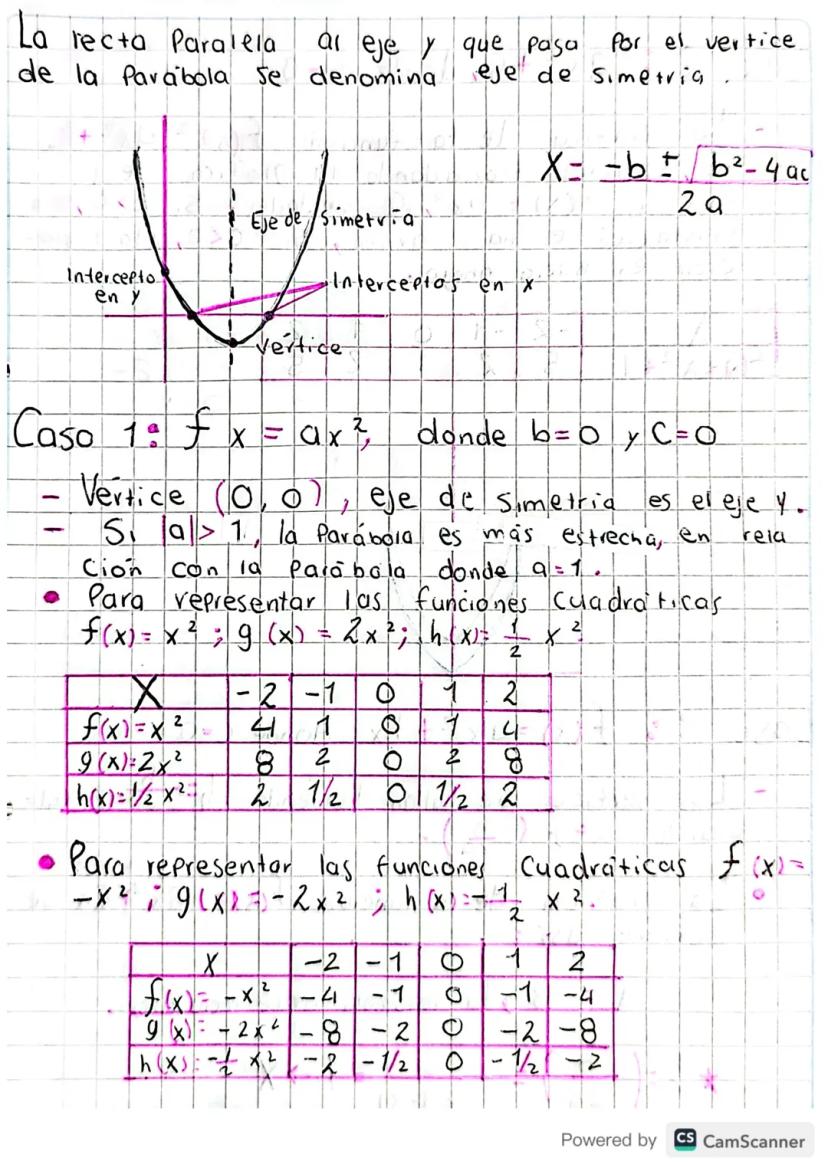 La recta Paralela al eje y que pasa por el vertice
de la Parábola se denomina eje de simetría.
X = -b ± √b² - 4ac
2a
Eje de simetría
Intercepto
en y
Interceptos en x
Vértice
Caso 1: f x = ax², donde b=0 y C=0
- Vértice (0,0), eje de simetria es el eje y.
- Si |a|>1, la Parábola es más estrecha, en rela
ción con la parábola donde a=1.
• Para representar las funciones cuadráticas
f(x)= x² ; g (x) = 2x²; h(x)= 1/2 x²
X -2 -1 0 1 2
f(x)=x² 4 1 0 1 4
g(x)=2x² 8 2 0 2 8
h(x)=1/2 x²= 2 1/2 0 1/2 2
• Para representar las funciones Cuadráticas f(x)=
-x² ; g(x) = -2x² ; h(x)=-1/2 x².
X -2 -1 0 1 2
f(x)= -x² -4 -1 0 -1 -4
g(x)= -2x² -8 -2 0 -2 -8
h(x)= -1/2 x² -2 -1/2 0 -1/2 -2
Powered by CS CamScanner